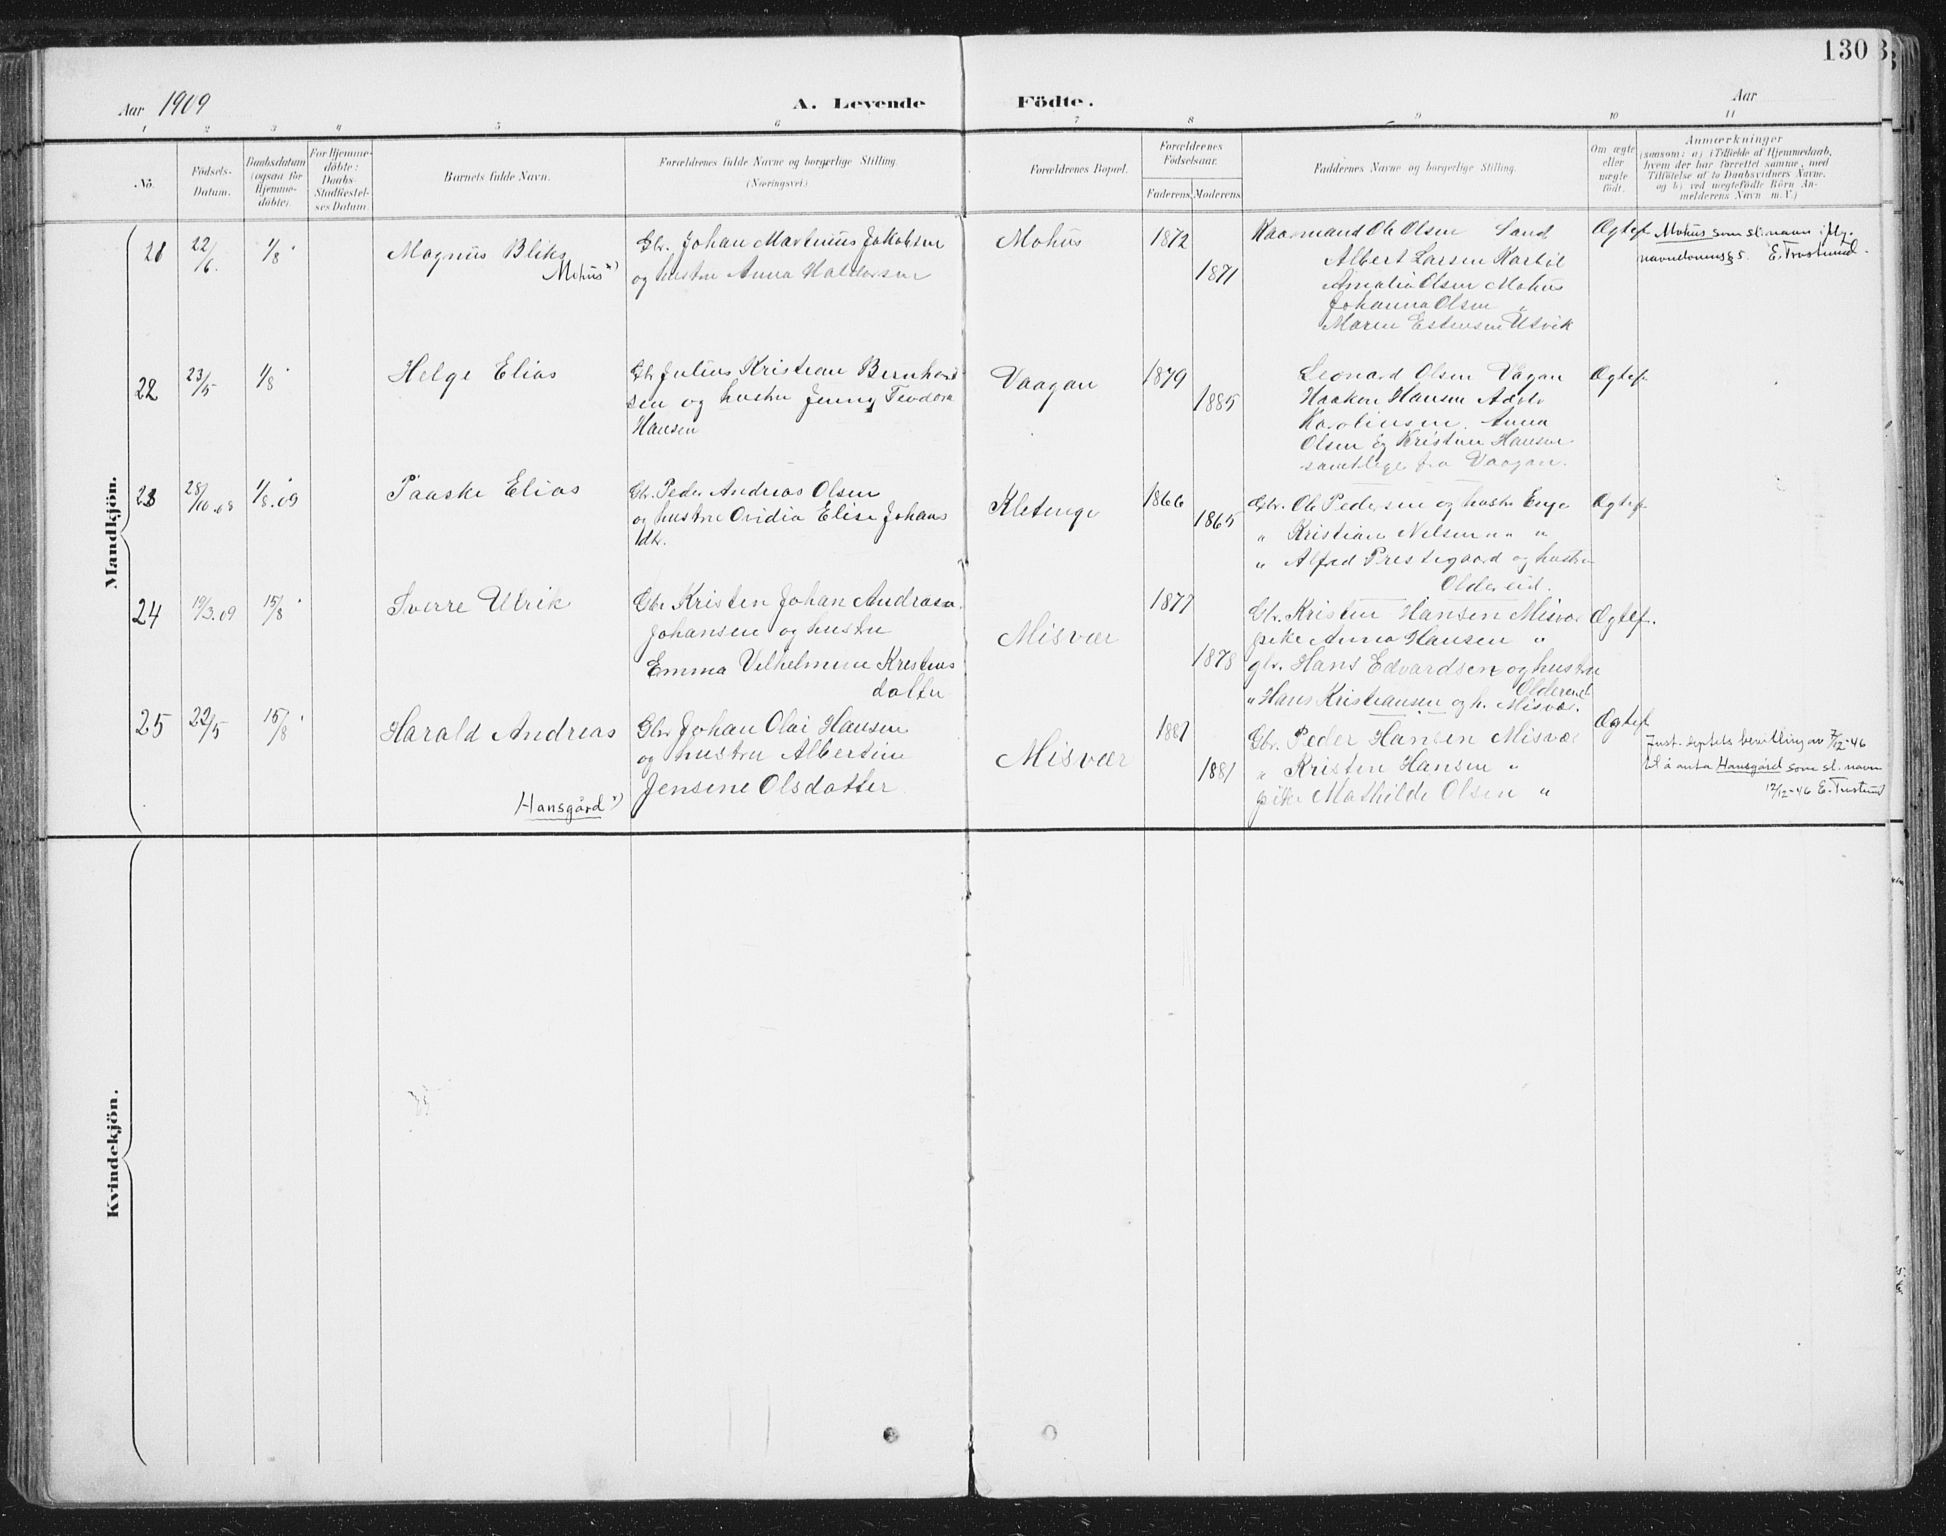 130
Aar 1909
A. Levende Födte.
Aar
1 2 3 4 5 6 7 8 9 10 11
No.
Födsels-
Datum.
Daabsdatum
(ogsaa for
Hjemme-
döbte).
For Hjemme-
döbte:
Daabs-
Stadfæstel-
ses Datum.
Barnets fulde Navn.
Forældrenes fulde Navne og borgerlige Stilling.
(Næringsvei.)
Forældrenes Bopæl.
Forældrenes
Födselsaar.
Faderens. Moderens.
Faddernes Navne og borgerlige Stilling.
Om ægte
eller
uægte
födt.
Anmærkninger
(saasom: a) i Tilfælde af Hjemmedaab,
hvem der har forrettet samme, med
Tilföielse af to Daabsvidners Navne.
og b) ved uægtefödte Börn An-
melderens Navn m. V.)
Mandkjön.
21
22/6.
1/8
Magnus Bliks
Mohus
Gbr. Johan Martinius Jakobsen
og hustru Anna Haldorsen
Mohus
1872
1871
Kaarmand Ole Olsen Sand
Albert Larsen Karbøl
Amalia Olsen Mohus
Johanna Olsen "
Maren Estensen Utvik
Ægtef
Mohus som sl.navn iflg.
navnelovens § 5. E. Trostrud.
22
23/5
1/8
Helge Elias
Gbr Julius Kristian Bernhard
sen og hustru Jenny Teodora
Hansen
Vaagan
1879
1885
Leonard Olsen Vagan
Haaken Hansen Adolv
Karolinsen. Anna
Olsen og Kristine Hansen
samtlige fra Vaagan.
Ægtef
23
28/10.08
1/8.09
Paaske Elias
Gbr. Peder Andreas Olsen
og hustru Ovidia Elise Johans
dtr.
Kletenge
1866
1865
Gbr. Ole Pedersen og hustru Enge
" Kristian Nilsen " " "
" Alfred Prestegaard og hustru
Oldereid.
Ægtef
24
19/3.09
15/8
Sverre Ulrik
Gbr Kristen Johan Andreasen
Johansen og hustru
Emma Vilhelmine Kristens
datter
Misvær
1877
1878
Gbr. Kristen Hansen Misvær
pike Anna Hansen "
gbr. Hans Edvardsen og hustru
Oldereid
" Hans Kristiansen og h. Misvær.
Ægtef.
25
22/5
15/8
Harald Andreas
Hansgård
Gbr Johan Olai Hansen
og hustru Albertine
Jensine Olsdatter
Misvær
1881
1881
Gbr. Peder Hansen Misvær
" Kristen Hansen "
pike Mathilde Olsen "
Ægtef
Just. deptets bevilling av 7/12-46
til å anta Hansgård som sl. navn
12/12-46 E. Trostrud
Kvindekjön.